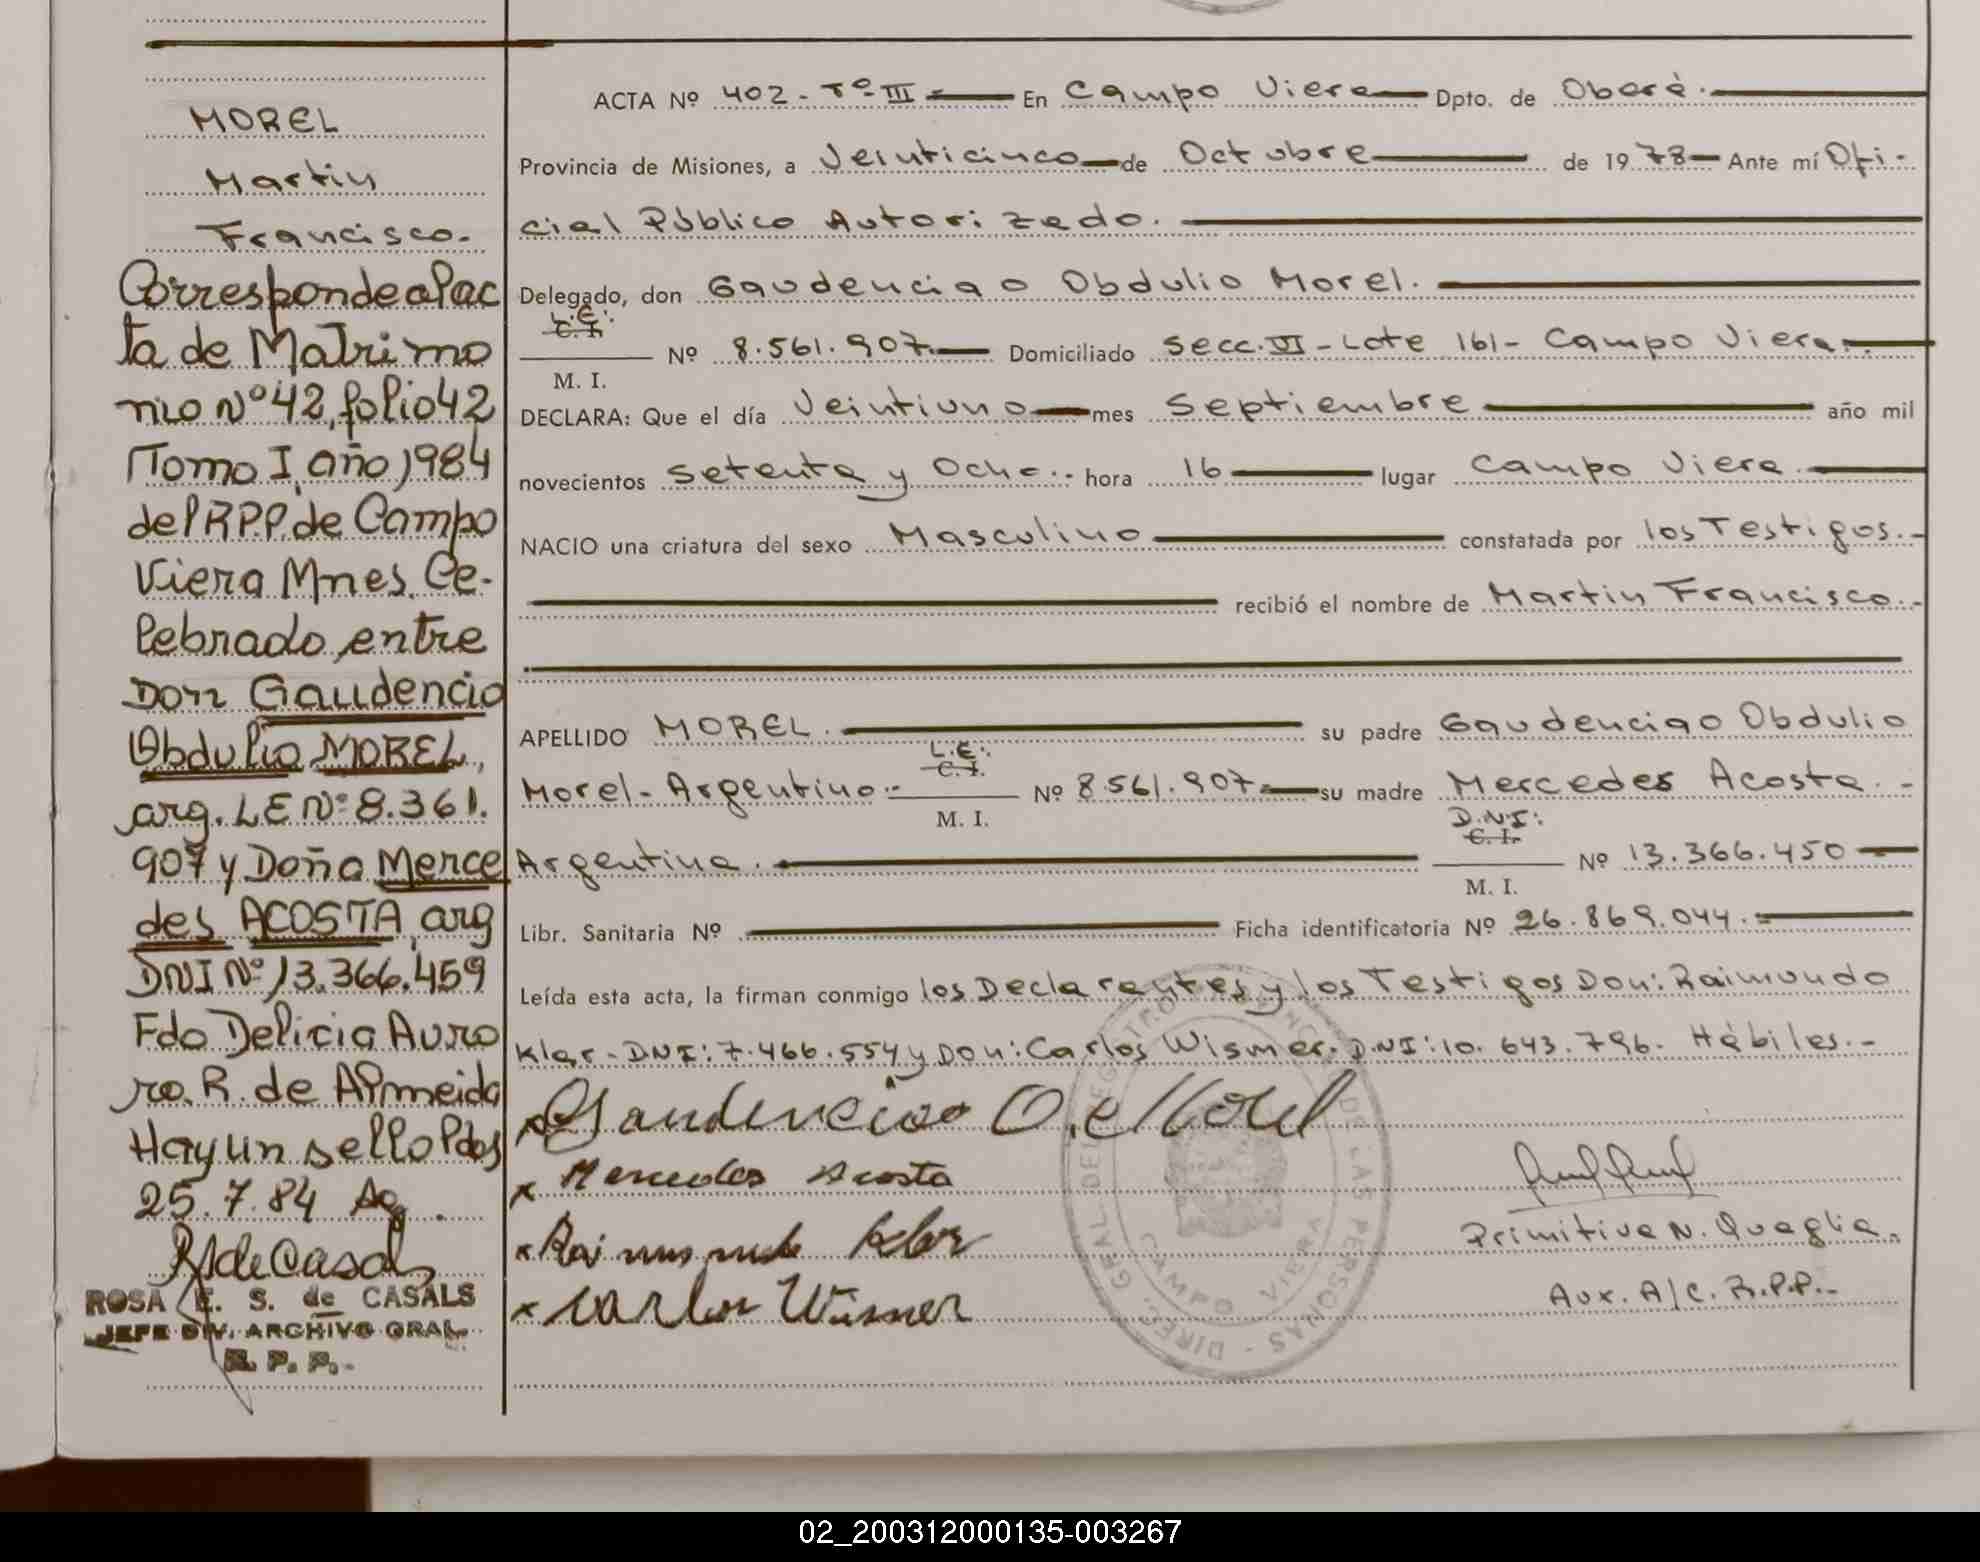 MOREL
Martin
Francisco.
Corresponde al ac
ta de Matrimo
nio Nº 42, folio 42
Tomo I, año 1984
del R.P.P. de Campo
Viera Mnes. Ce-
lebrado, entre
Don Gaudencio
Obdulio MOREL,
arg. LE Nº 8.361.
907 y Doña Merce
des ACOSTA, arg
DNI Nº 13.366.459
Fdo Delicia Auro
ra. R. de Almeida
Hay un sello Pdos
25.7.84
RSdeCasals
ROSA E. S. de CASALS
JEFE DIV. ARCHIVO GRAL.
R. P. P.-
ACTA Nº 402 - Tº III En Campo Viera Dpto. de Oberá.
Provincia de Misiones, a Veinticinco de Octubre de 1978 Ante mí Ofi-
cial Público Autorizado.
Delegado, don Gaudenciao Obdulio Morel.
L.E:
C. I.
Nº 8.561.907. Domiciliado Secc. VI - Lote 161 - Campo Viera.
M. I.
DECLARA: Que el día Veintiuno mes Septiembre año mil
novecientos setenta y Ocho.- hora 16 lugar Campo Viera.
NACIO una criatura del sexo Masculino constatada por los Testigos.-
recibió el nombre de Martin Francisco.-
APELLIDO MOREL. su padre Gaudenciao Obdulio
L.E:
C. I.
Morel - Argentino.- Nº 8.561.907. su madre Mercedes Acosta.-
M. I.
D.N.I:
C. I.
Argentina. Nº 13.366.450
M. I.
Libr. Sanitaria Nº Ficha identificatoria Nº 26.869.044.
Leída esta acta, la firman conmigo los Declarantes y los Testigos Don: Raimundo
Klar - DNI: 7.466.554 y Don: Carlos Wismer. D.N.I: 10.643.796. Hábiles.-
x Gaudencio O. Morel
x Mercedes Acosta
x Raimundo Klar
x Carlos Wismer
Primitiva N. Quaglia.
Aux. A/C. R.P.P.-
DIREC. GRAL. DEL REGISTRO PROVINCIAL DE LAS PERSONAS -
CAMPO VIERA
02_200312000135-003267